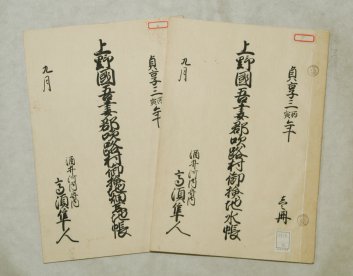 貞享三丙寅年
上野國吾妻郡吹路村御検地水帳
九月
酒井河内守内
高須隼人
壱冊
貞享三丙寅年
上野國吾妻郡吹路村御検地水帳
九月
酒井河内守内
高須隼人